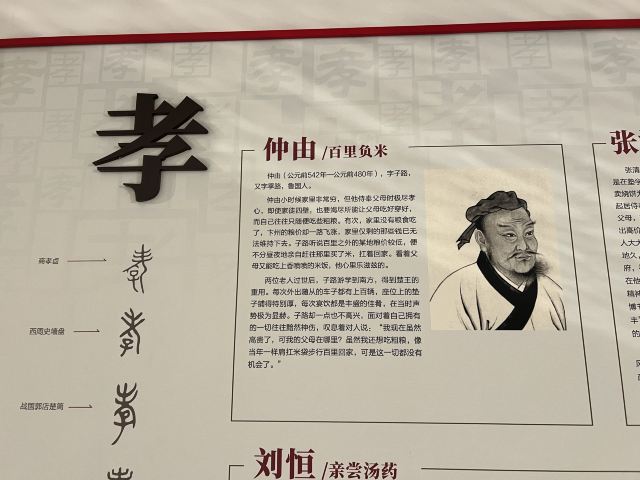 孝
商孝卣
西周史墙盘
战国郭店楚简
仲由/百里负米
仲由(公元前542年—公元前480年),字子路,
又字季路,鲁国人。
仲由小时候家里非常穷,但他侍奉父母时极尽孝
心,即使家徒四壁,也要竭尽所能让父母吃好穿好,
而自己往往只随便吃些粗粮。有次,家里没有粮食吃
了,卞州的粮价却一路飞涨,家里仅剩的那些钱已无
法维持下去。子路听说百里之外的某地粮价较低,便
不分昼夜地亲自赶往那里买了米,扛着回家。看着父
母又能吃上香喷喷的米饭,他心里乐滋滋的。
两位老人过世后,子路游学到南方,得到楚王的
重用。每次外出随从的车子都有上百辆,座位上的垫
子铺得特别厚,每次宴饮都是丰盛的佳肴,在当时声
势极为显赫。子路却一点也不高兴,面对着自己拥有
的一切往往黯然神伤,叹息着对人说:“我现在虽然
高贵了,可我的父母在哪里?虽然我还想吃粗粮,像
当年一样肩扛米袋步行百里回家,可是这一切都没有
机会了。”
刘恒/亲尝汤药
张
张清
是在塾学
卖烧饼
起居侍
出高价
人大大
地久,
府,
在他
精神
博
丰
的